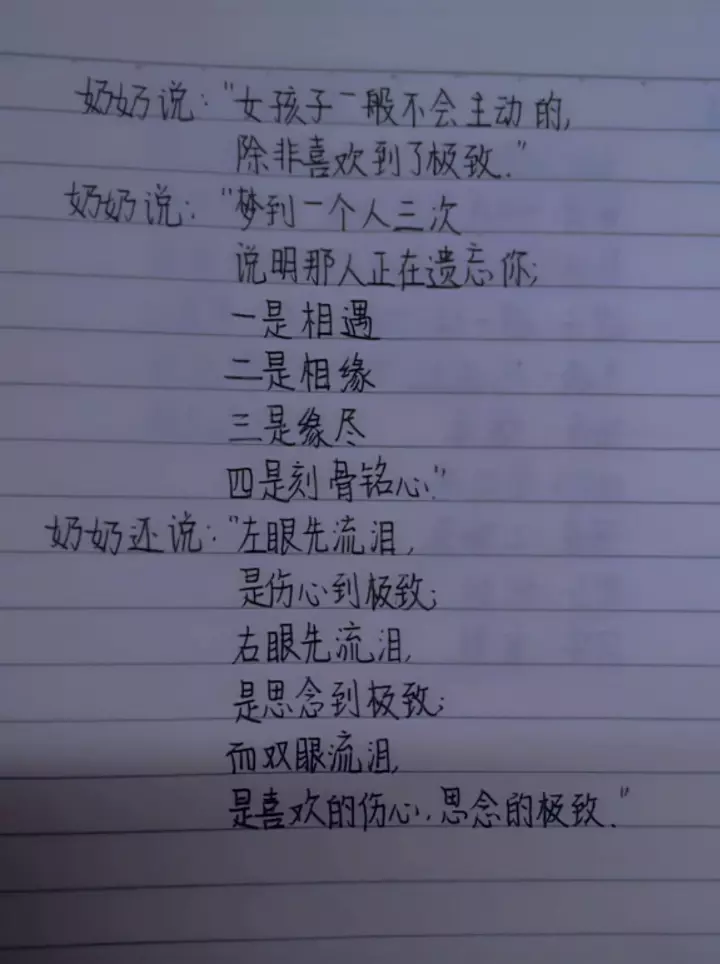 奶奶说："女孩子一般不会主动的,
除非喜欢到了极致."
奶奶说："梦到一个人三次
说明那人正在遗忘你;
一是相遇
二是相缘
三是缘尽
四是刻骨铭心."
奶奶还说："左眼先流泪,
是伤心到极致;
右眼先流泪,
是思念到极致;
而双眼流泪,
是喜欢的伤心.思念的极致."